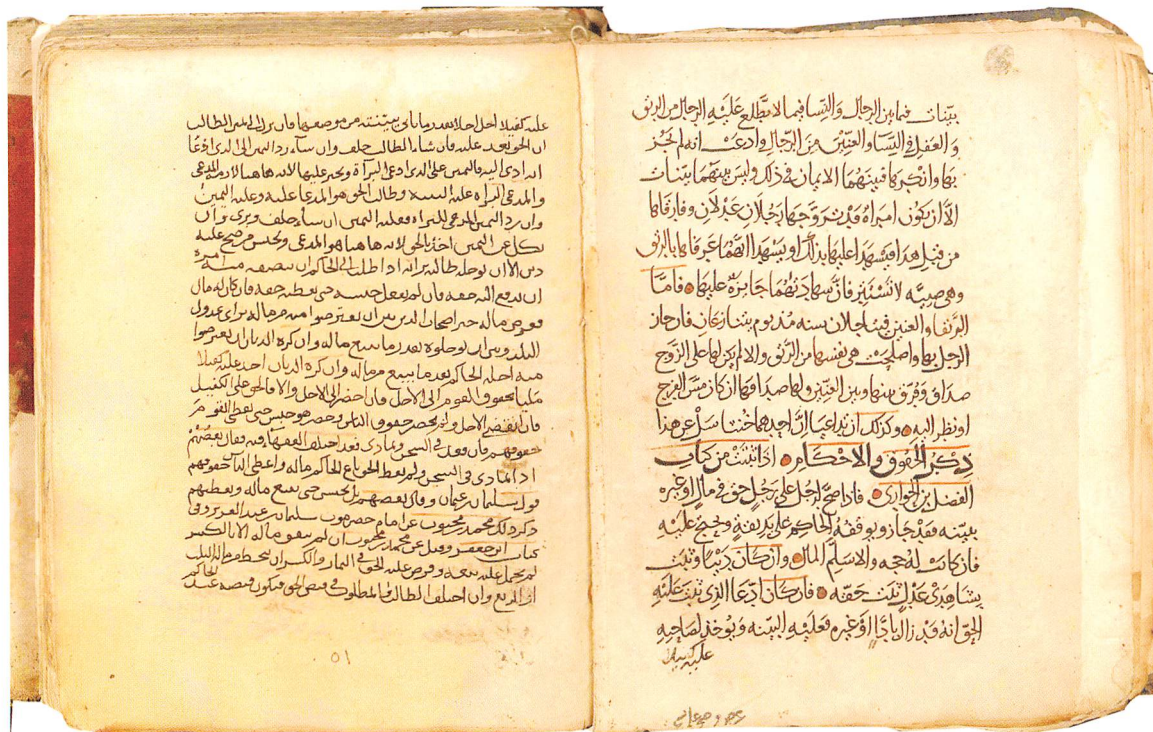 بينات فيما بين الرجال والنسا فيما لا تطلع عليه الرجال من الرتق
والعفل في النسا والعنين من الرجال وادعت انه لم يجز
بها وانكرها فبينهما الايمان في ذلك وليس بينهما بينات
الا ان يكون امراه قد تزوجها رجلان عدلان وفارقاها
من قبل هدا فيشهدا عليها بذلك او يشهدا انهما عرفاها بالرتق
وهي صبيه لا تستبين فان شهادتهما جايزه عليها فاما
الرتقا والعنين فيؤجلان سنه مذ يوم يتنازعان فان جاز
الرجل بها واصلحت هي نفسها من الرتق والا لم يكن لها على الزوج
صداق وفرق بينهما وبين العنين ولها صداقها ان كان مس الفرج
او نظر اليه وكذلك ان تداعيا ان احدهما خنثا سل عن هذا
ذكر الحقوق والاحكام اذا ثبت من كتاب
الفضل بن الحواري فاذا صح لرجل على رجل حق في مال او غيره
ببينه فقد جاز ويوقفه الحاكم على يد ثقة ويحتج عليه
فان كانت له حجه والا سلم المال وان كان دينا وثبت
بشاهدي عدل ثبت حقه فان كان ادعا الذي ثبت عليه
الحق انه قد زال بادا او غيره فعليه البينه ويوخذ لصاحبه
عليه كفيلا
عليه كفيلا اجل اجلا بقدر ما ياتي ببينته من موضعها فان نزل الى يمين الطالب
ان الحق بعد عليه فان شاء الطالب حلف وان شاء رد اليمين الى الذي ادعا
انه ادى اليه فاليمين على الذي ادعى البرآة ويجبر عليها لانه هاهنا لازم المدعي
والمدعي البراه عليه البينه وطالب الحق هو المدعا عليه وعليه اليمين
وان رد اليمين المدعي للبراه فعليه اليمين ان شاء حلف وبري وان
نكل عن اليمين اخذ بالحق لانه هاهنا هو المدعي ويحبس من صح عليه
دين الا ان يوجله طالبه برايه اذا طلب الى الحاكم ان ينصفه منه امره
ان يدفع اليه حقه فان لم يفعل حبسه حتى يعطيه حقه فان كان له مال
فعرض ماله خير اصحاب الدين بين ان يعترضوا منه من ماله براي عدول
البلد وبين ان يوجلوه بقدر ما يبيع ماله وان كره الديان ان يعترضوا
منه اجله الحاكم بقدر ما يبيع من ماله وان كره الديان اخذ عليه كفيلا
مليا بحقوق القوم الى الاجل فان احضر الى الاجل والا فالحق على الكفيل
فان انقضى الاجل ولم يحضر حقوق الناس وحضر هو حبس حتى يعطى القوم
حقوقهم فان قعد في السجن وتمادى فقد اختلف الفقهاء فيه فقال بعضهم
اذا تمادى في السجن ولم يعط الحق باع الحاكم ماله واعطى الناس حقوقهم
قول سليمان بن عثمان وقال بعضهم بل يحبس حتى يبيع ماله ويعطيهم
ذكر ذلك محمد بن محبوب عن امام حضرموت سليمان بن عبد العزيز وفي
كتاب ابن جعفر وقيل عن محمد بن محبوب ان لم يتفق ماله الا بالكسر
لم يحمل عليه بيعه وفرض عليه الحق في الثمار والكسر ان ينحط من ماله الثلث
او الربع وان اختلف الطالب والمطلوب في قبض الحق فيكون قبضه عند
الحاكم
٥١